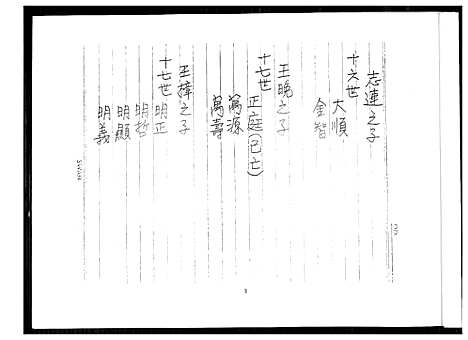 志連之子
十六世
大順
金智
王晚之子
十七世
正庭(已亡)
萬源
萬壽
王梓之子
十七世 明正
明哲
明顯
明義